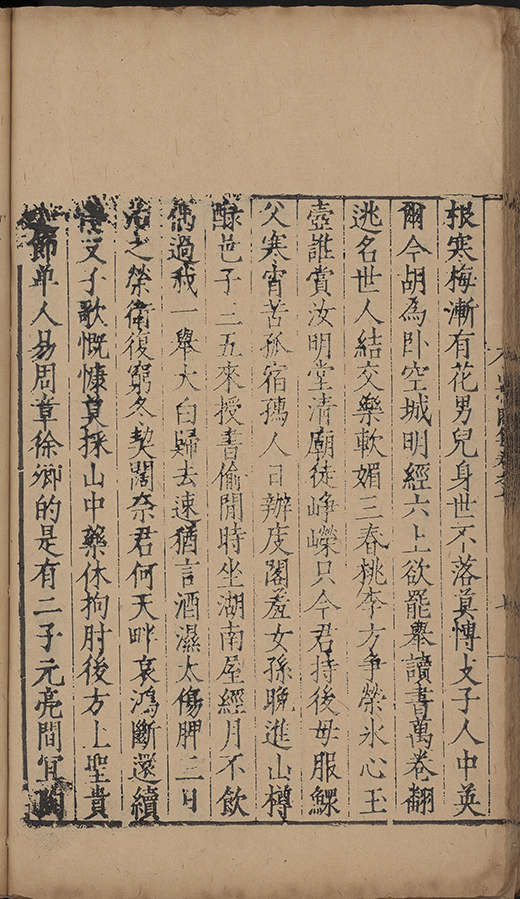 根寒梅漸有花男兒身世不落莫博士子人中英
爾今胡為卧空城明經六上欲罷舉讀書萬卷翻
逃名世人結交樂軟媚三春桃李方爭榮氷心玉
壺誰賞汝明堂清廟徒崢嶸只今君持後母服鰥
父寒宵苦孤宿孺人日辦庋閣羞女孫晚進山樽
醁芑子三五來授書偷閒時坐湖南屋經月不飲
偶過我一舉大白歸去速猶言酒濕太傷脾二日
之榮衛復窮冬契闊奈君何天畔哀鴻斷還續
父子歌慨慷莫採山中藥休拘肘後方上聖貴
節单人易周章徐卿的是有二子元亮間宜